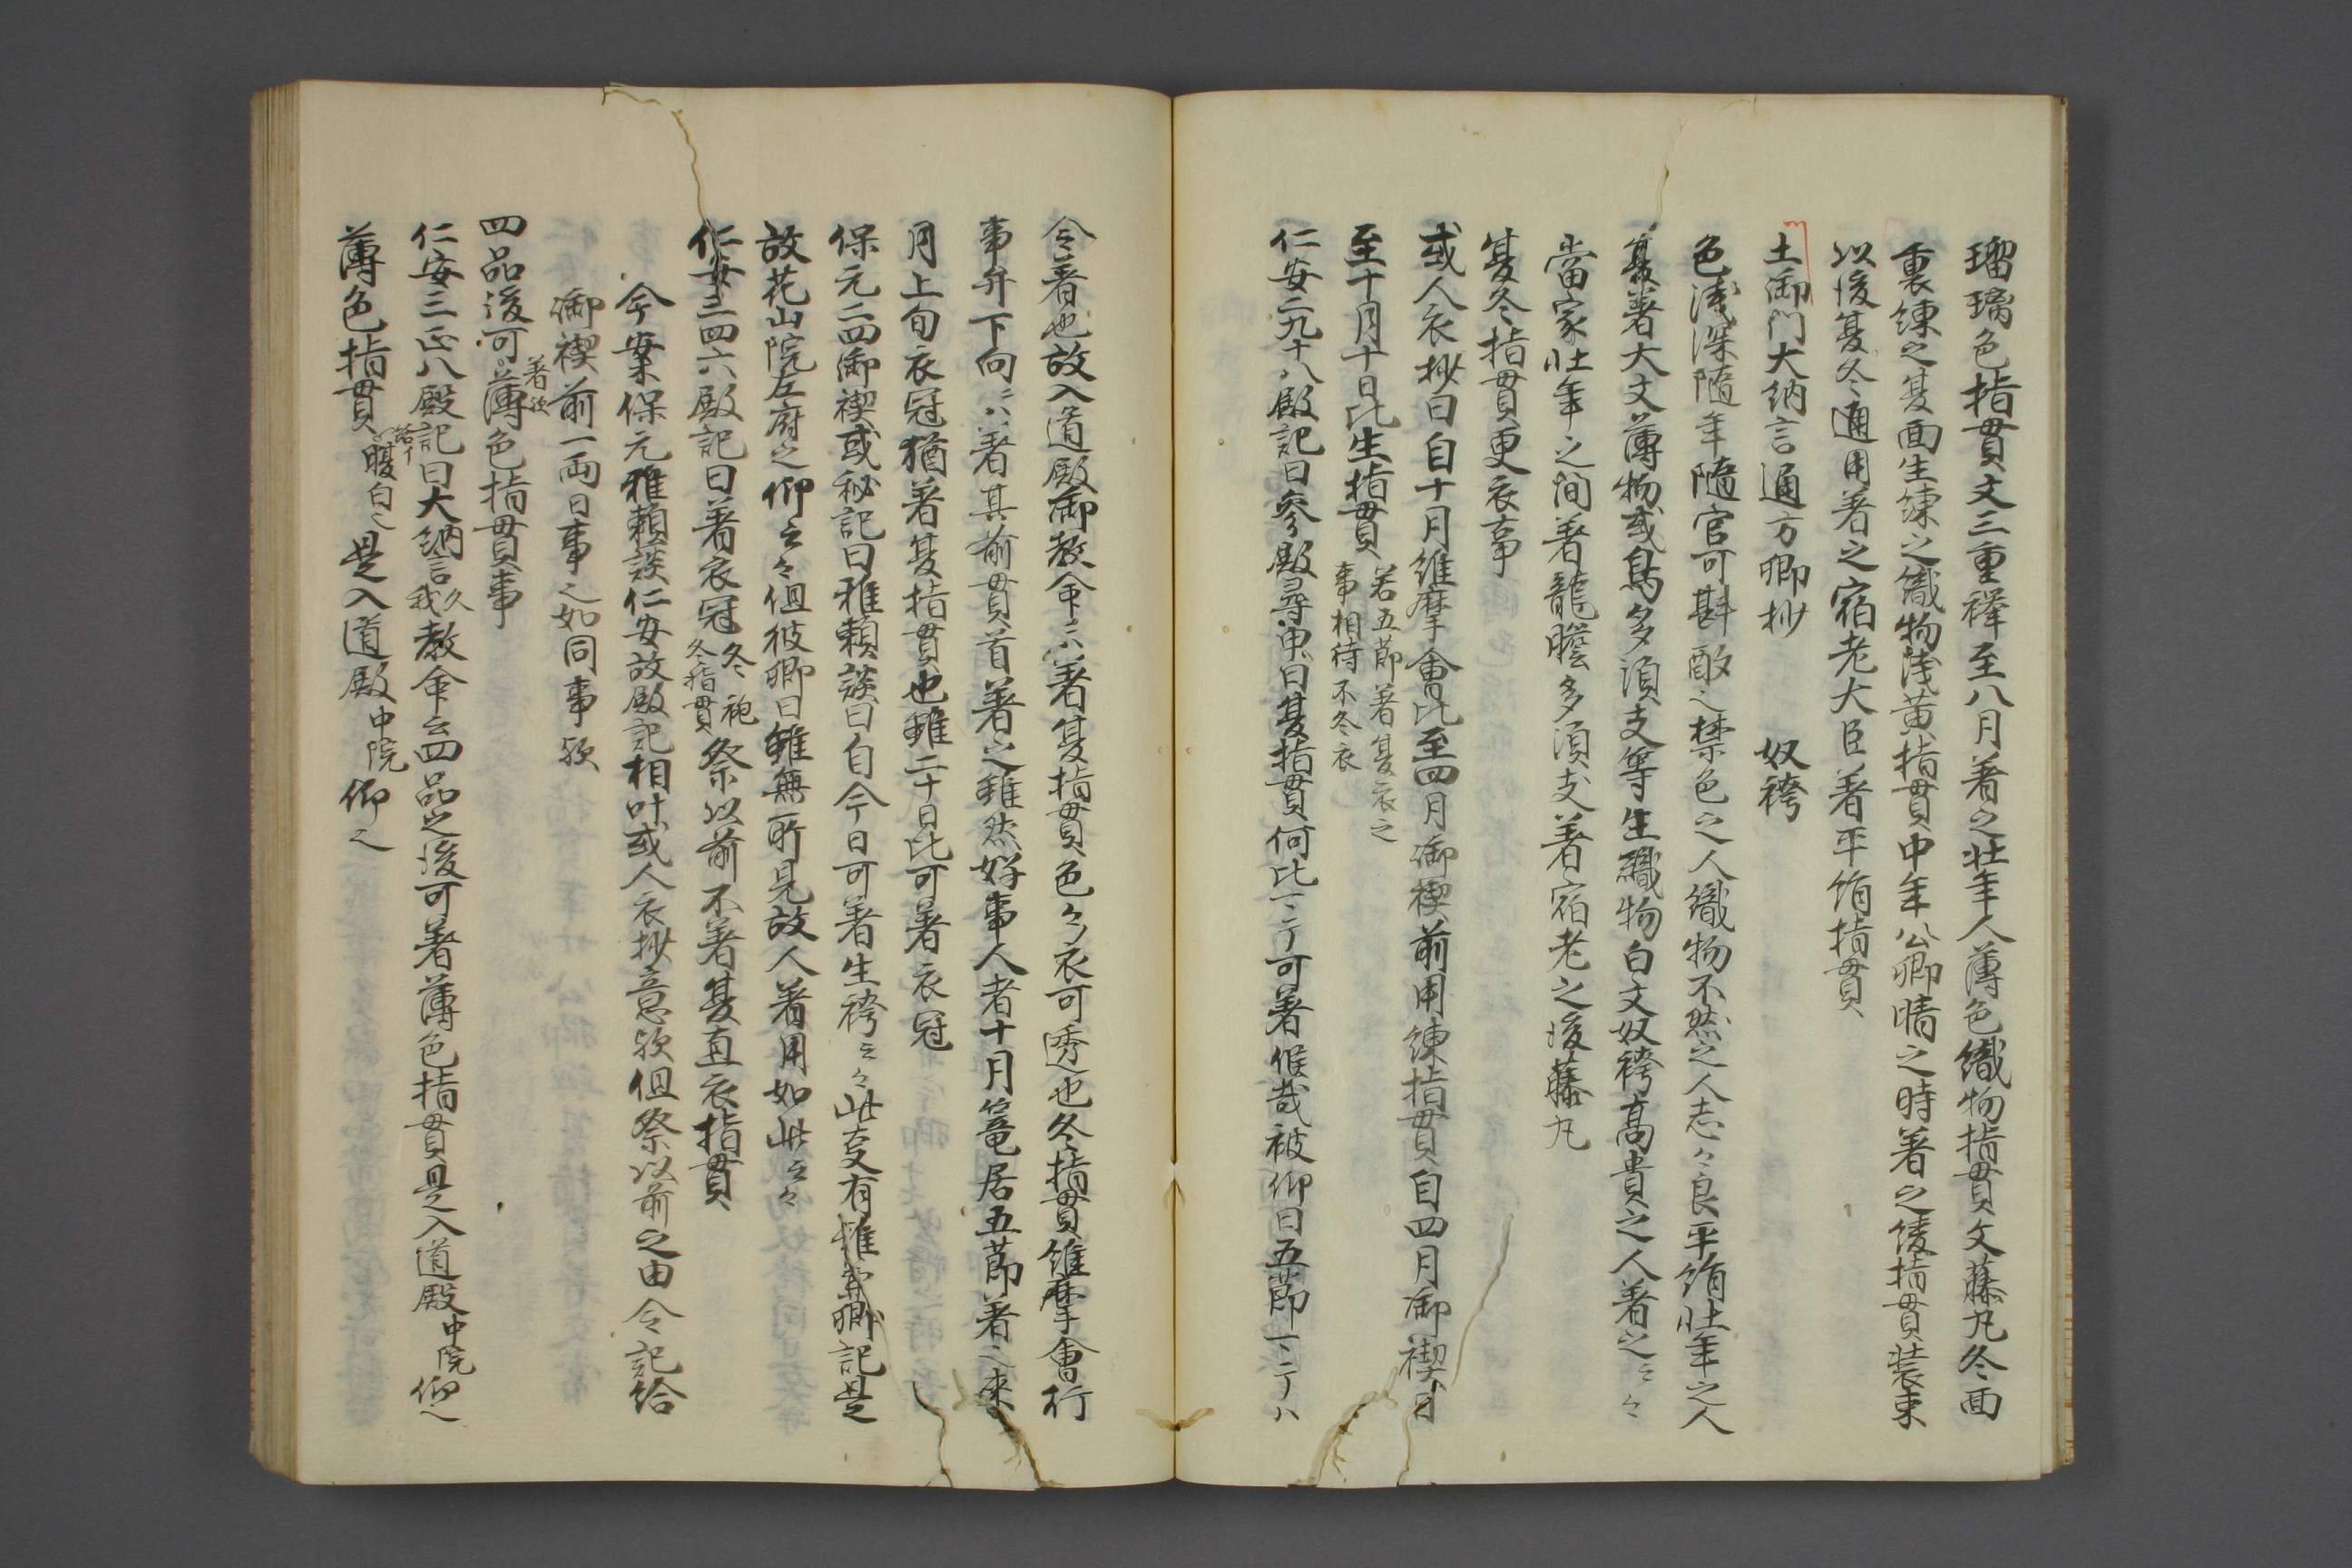 瑠璃色指貫文三重襷至八月着之壮年人薄色織物指貫文藤丸冬面
裏練之夏面生練之織物浅黄指貫中年公卿晴之時着之綾指貫装束
以後夏冬通用着之宿老大臣着平絹指貫
土御門大納言通方卿抄　奴袴
色浅深隨年隨官可斟酌之禁色之人織物不然之人志々良平絹壮年之人
夏着大文薄物或鳥多須支等生織物白文奴袴高貴之人着之云々
當家壮年之間着龍膽多須支着宿老之後藤丸
夏冬指貫更衣事
或人衣抄曰自十月維摩會比至四月御禊前用練指貫自四月御禊日
至十月十日比生指貫若五節着夏衣之事相待不冬衣
仁安二九十八殿記曰参殿尋申曰夏指貫何比マテ可着候哉被仰曰五節マテハ
令着也故入道殿御教命ニハ着夏指貫色々衣可透也冬指貫維摩會行
事弁下向ニハ着其前貫首着之雖然好事人者十月篭居五節着之来
月上旬衣冠猶着夏指貫也雖二十日比可着衣冠
保元二四御禊或秘記曰雅頼談曰自今日可着生袴云々此事有雅兼卿記是
故花山院左府之仰云々但彼卿曰雖無所見故人着用如此云々
仁安三四六殿記曰着衣冠冬袍冬指貫祭以前不着夏直衣指貫
今案保元雅頼談仁安故殿記相叶或人衣抄意歟但祭以前之由令記給
御禊前一両日事之如同事歟
四品後可着歟薄色指貫事
仁安三正八殿記曰大納言久我教命云四品之後可着薄色指貫是入道殿中院仰之
薄色指貫腹白之是入道殿中院仰之